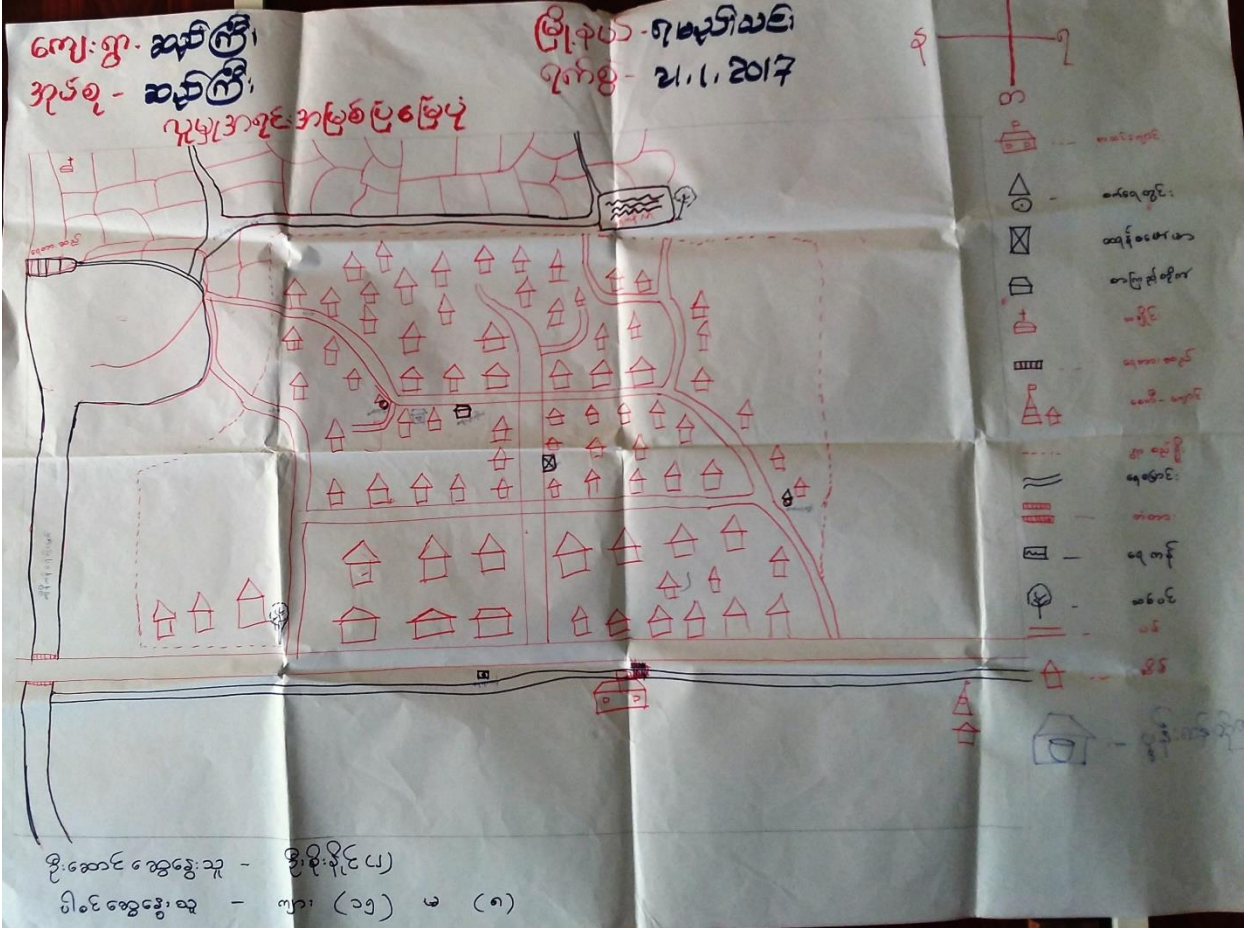 ကျေးရွာ - ဆည်ကြီး
အုပ်စု - ဆည်ကြီး
မြို့နယ် - ရမည်းသင်း
ရက်စွဲ - 21.1.2017
လူမှုအရင်းအမြစ်ပြမြေပုံ
န
ရ
တ
စာသင်ကျောင်း
စက်ရေတွင်း
ထရန်စဖော်မာ
စာကြည့်တိုက်
ရေတားဆည်
ရွာစည်းရိုး
ရေမြောင်း
တံတား
ရေကန်
သစ်ပင်
လမ်း
အိမ်
ဦးဆောင်ဆွေးနွေးသူ - ဦးစိုးနိုင် (၂)
ပါဝင်ဆွေးနွေးသူ - ကျား (၁၅) မ (၈)